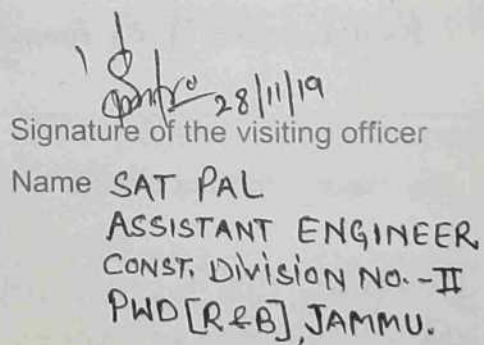 28/11/19
Signature of the visiting officer
Name SAT PAL
ASSISTANT ENGINEER
CONST. DIVISION NO.-II
PWD[R&B], JAMMU.